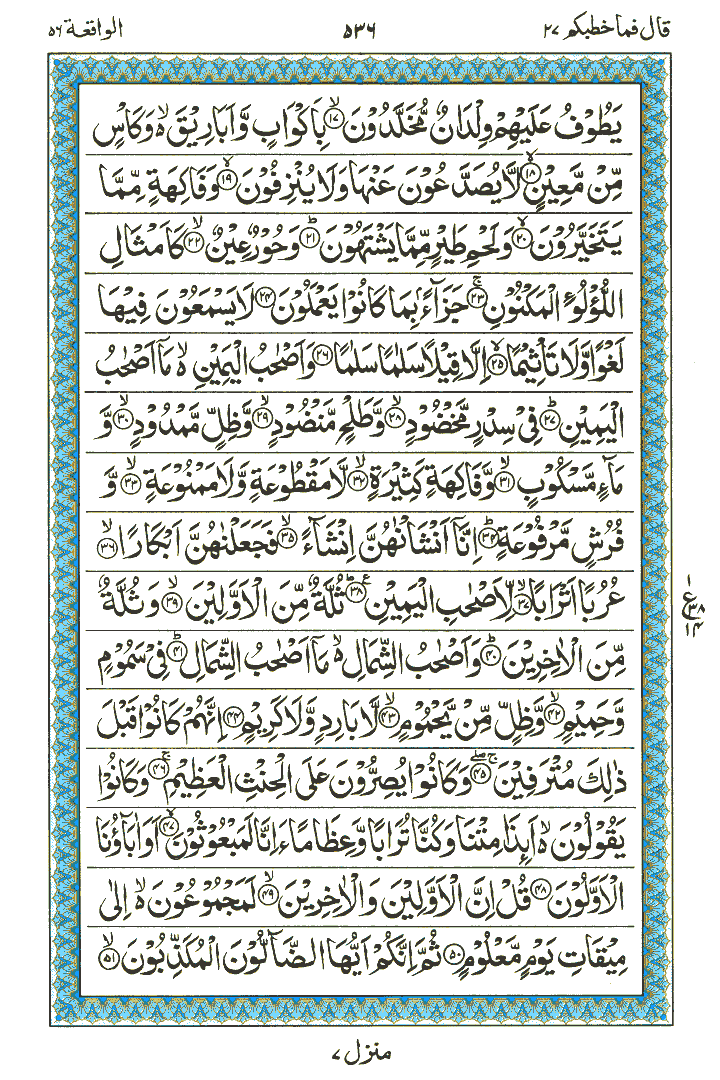 قال فما خطبكم ٢٧ ٥٣٦ الواقعة ٥٦
يَطُوْفُ عَلَيْهِمْ وِلْدَانٌ مُّخَلَّدُوْنَ ۙ﴿۱۷﴾ بِاَكْوَابٍ وَّ اَبَارِيْقَ ۙ۬ وَ كَاْسٍ
مِّنْ مَّعِيْنٍ ۙ﴿۱۸﴾ لَّا يُصَدَّعُوْنَ عَنْهَا وَ لَا يُنْزِفُوْنَ ۙ﴿۱۹﴾ وَ فَاكِهَةٍ مِّمَّا
يَتَخَيَّرُوْنَ ۙ﴿۲۰﴾ وَ لَحْمِ طَيْرٍ مِّمَّا يَشْتَهُوْنَ ؕ﴿۲۱﴾ وَ حُوْرٌ عِيْنٌ ۙ﴿۲۲﴾ كَاَمْثَالِ
اللُّؤْلُؤِ الْمَكْنُوْنِ ۚ﴿۲۳﴾ جَزَآءًۢ بِمَا كَانُوْا يَعْمَلُوْنَ ﴿۲۴﴾ لَا يَسْمَعُوْنَ فِيْهَا
لَغْوًا وَّ لَا تَاْثِيْمًا ۙ﴿۲۵﴾ اِلَّا قِيْلًا سَلٰمًا سَلٰمًا ﴿۲۶﴾ وَ اَصْحٰبُ الْيَمِيْنِ ۙ۬ مَاۤ اَصْحٰبُ
الْيَمِيْنِ ؕ﴿۲۷﴾ فِيْ سِدْرٍ مَّخْضُوْدٍ ۙ﴿۲۸﴾ وَّ طَلْحٍ مَّنْضُوْدٍ ۙ﴿۲۹﴾ وَّ ظِلٍّ مَّمْدُوْدٍ ۙ﴿۳۰﴾ وَّ
مَآءٍ مَّسْكُوْبٍ ۙ﴿۳۱﴾ وَّ فَاكِهَةٍ كَثِيْرَةٍ ۙ﴿۳۲﴾ لَّا مَقْطُوْعَةٍ وَّ لَا مَمْنُوْعَةٍ ۙ﴿۳۳﴾ وَّ
فُرُشٍ مَّرْفُوْعَةٍ ؕ﴿۳۴﴾ اِنَّاۤ اَنْشَاْنٰهُنَّ اِنْشَآءً ۙ﴿۳۵﴾ فَجَعَلْنٰهُنَّ اَبْكَارًا ۙ﴿۳۶﴾
عُرُبًا اَتْرَابًا ۙ﴿۳۷﴾ لِّاَصْحٰبِ الْيَمِيْنِ ؕ﴿۳۸﴾ ثُلَّةٌ مِّنَ الْاَوَّلِيْنَ ۙ﴿۳۹﴾ وَ ثُلَّةٌ
١ ع ٣٨ ١٤
مِّنَ الْاٰخِرِيْنَ ؕ﴿۴۰﴾ وَ اَصْحٰبُ الشِّمَالِ ۙ۬ مَاۤ اَصْحٰبُ الشِّمَالِ ؕ﴿۴۱﴾ فِيْ سَمُوْمٍ
وَّ حَمِيْمٍ ۙ﴿۴۲﴾ وَّ ظِلٍّ مِّنْ يَّحْمُوْمٍ ۙ﴿۴۳﴾ لَّا بَارِدٍ وَّ لَا كَرِيْمٍ ﴿۴۴﴾ اِنَّهُمْ كَانُوْا قَبْلَ
ذٰلِكَ مُتْرَفِيْنَ ۚۖ﴿۴۵﴾ وَ كَانُوْا يُصِرُّوْنَ عَلَى الْحِنْثِ الْعَظِيْمِ ۚ﴿۴۶﴾ وَ كَانُوْا
يَقُوْلُوْنَ ۙ۬ اَئِذَا مِتْنَا وَ كُنَّا تُرَابًا وَّ عِظَامًا ءَاِنَّا لَمَبْعُوْثُوْنَ ۙ﴿۴۷﴾ اَوَ اٰبَآؤُنَا
الْاَوَّلُوْنَ ﴿۴۸﴾ قُلْ اِنَّ الْاَوَّلِيْنَ وَ الْاٰخِرِيْنَ ۙ﴿۴۹﴾ لَمَجْمُوْعُوْنَ ۙ۬ اِلٰى
مِيْقَاتِ يَوْمٍ مَّعْلُوْمٍ ﴿۵۰﴾ ثُمَّ اِنَّكُمْ اَيُّهَا الضَّآلُّوْنَ الْمُكَذِّبُوْنَ ۙ﴿۵۱﴾
منزل ٧